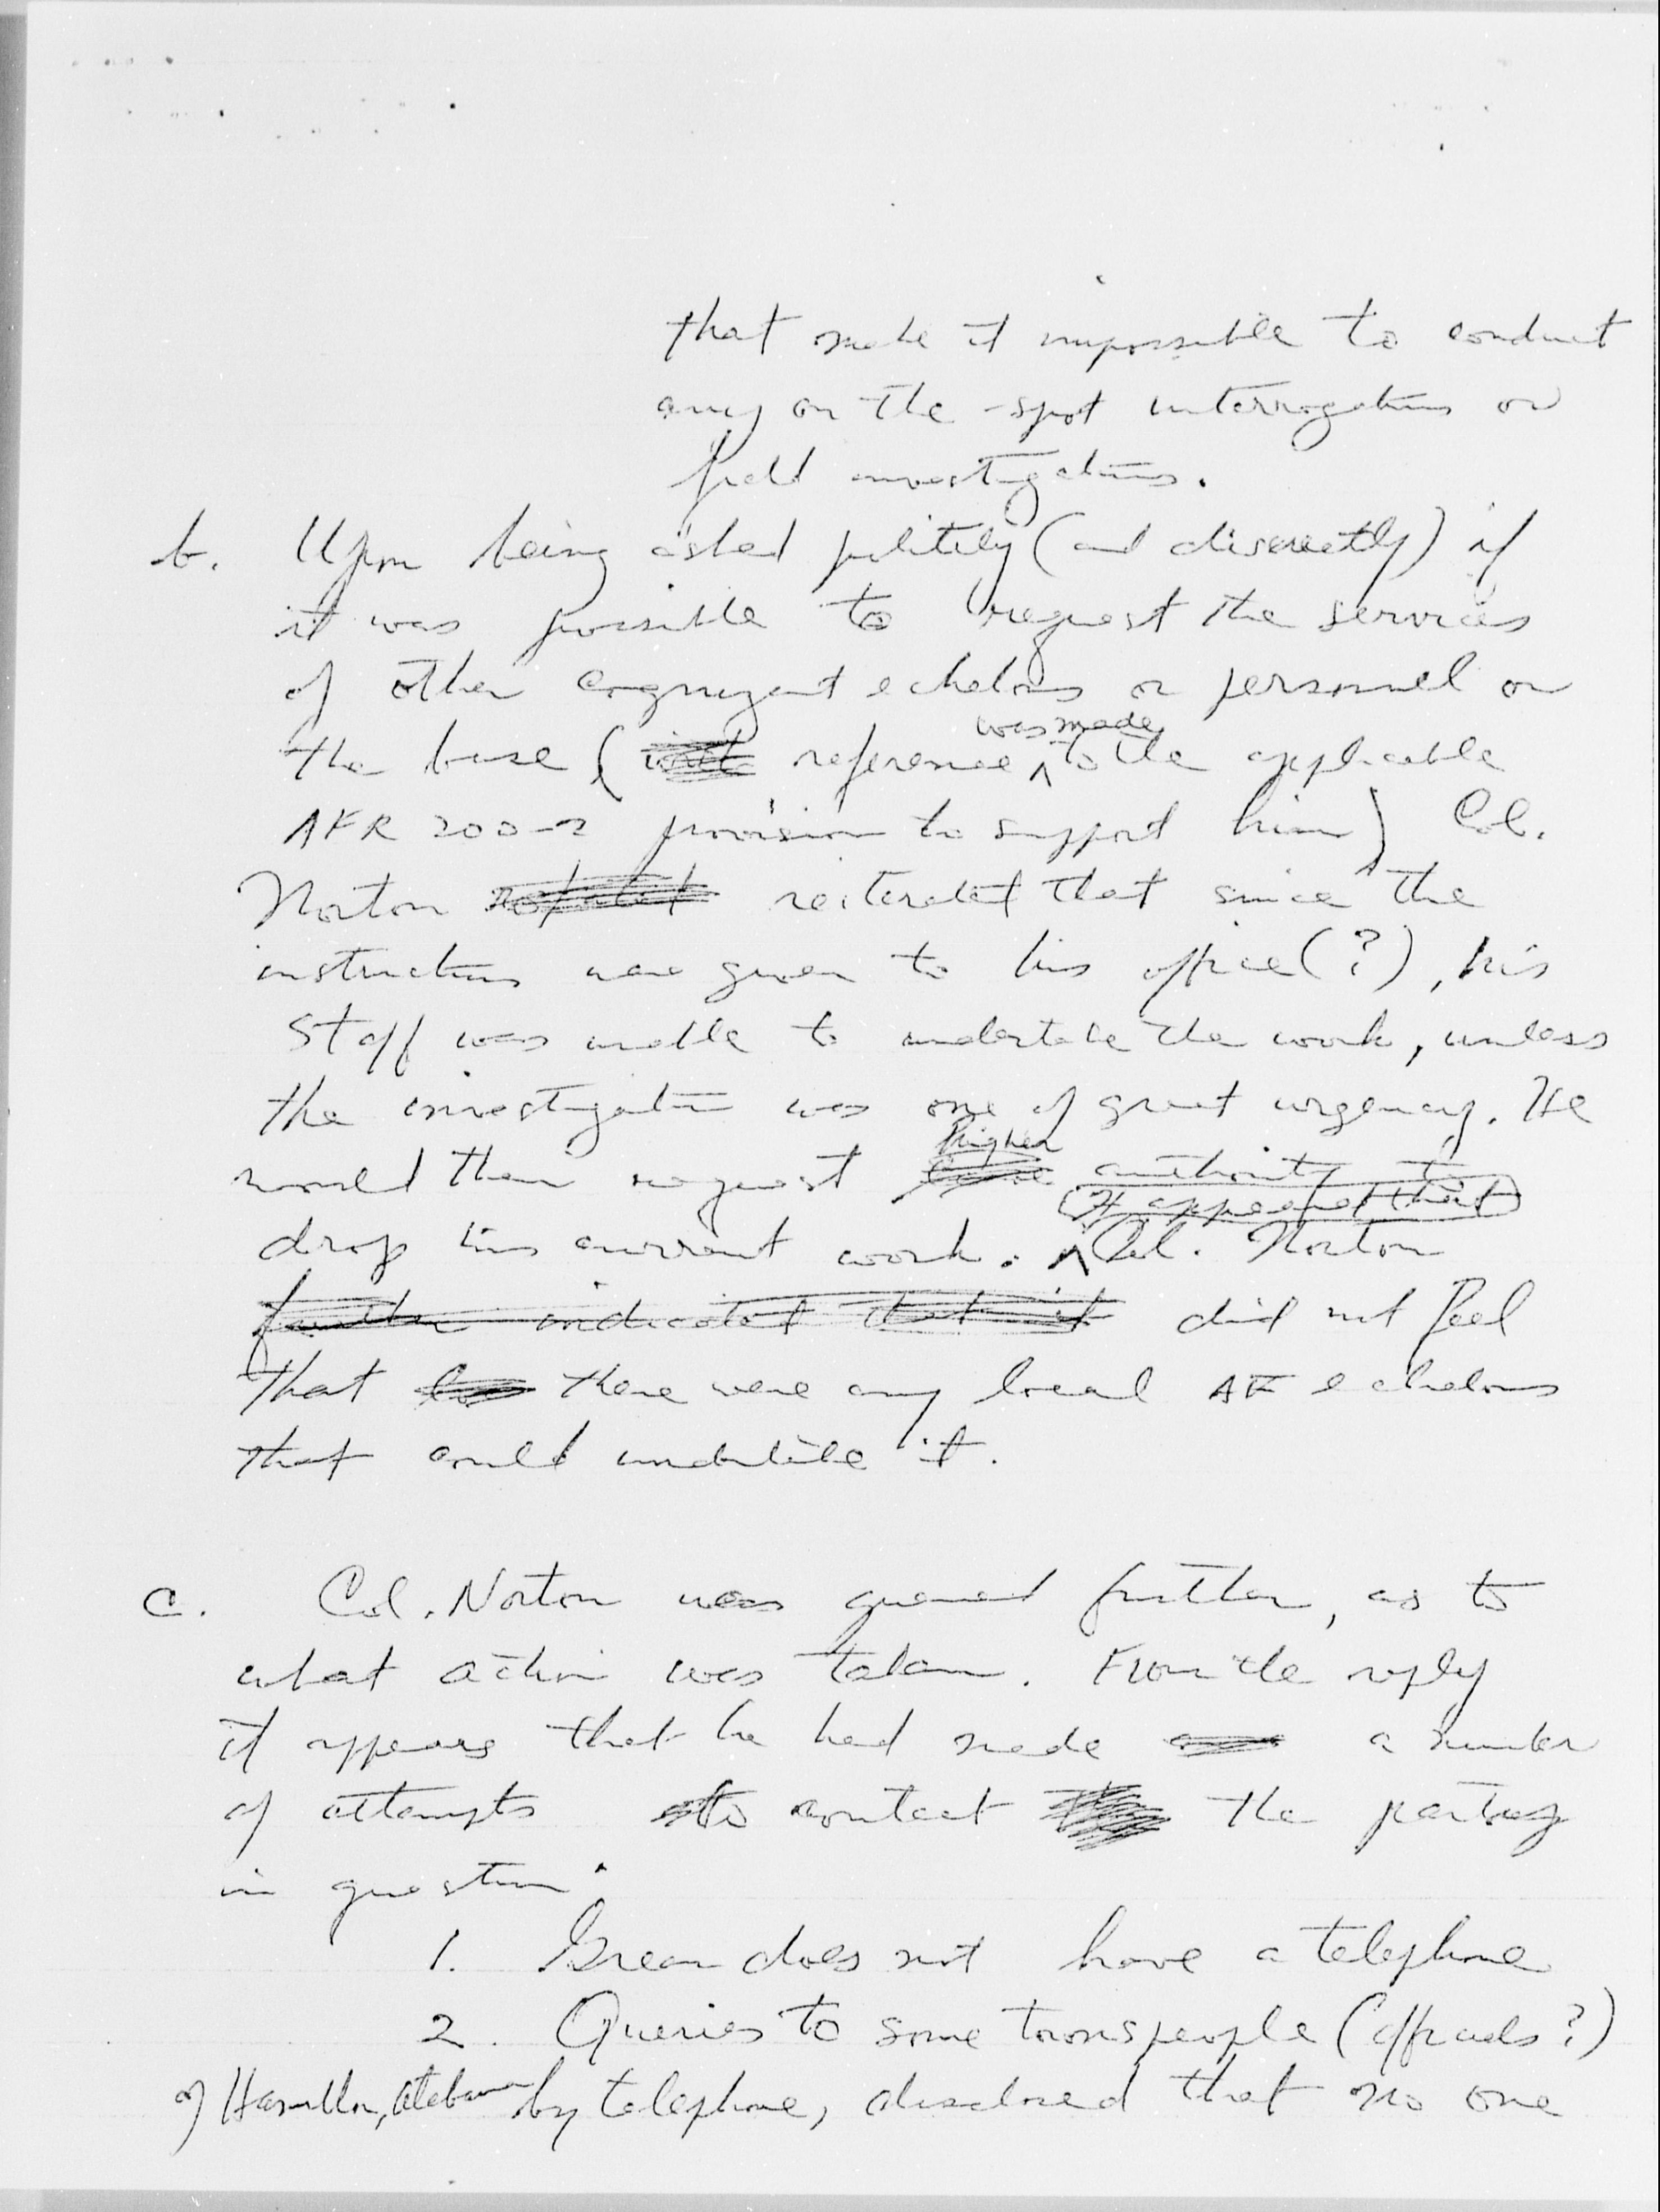 that made it impossible to conduct
any on the-spot interrogations or
field investigations.
b. Upon being asked politely (and discreetly) if
it was possible to request the services
of other cognizant echelons or personnel on
the base ( reference ^ was made to the applicable
AFR 200-2 provision to support him) Col.
Norton reiterated that since the
instructions were given to his office(?), his
staff was unable to undertake the work, unless
the investigation was one of great urgency. He
would then request higher authority to
drop his current work. ^ (It appeared that) Col. Norton
further indicated that it did not feel
that there were any local AF echelons
that could undertake it.
c. Col. Norton was queried further, as to
what action was taken. From the reply
it appears that he had made a number
of attempts to contact the party
in question:
1. Green does not have a telephone
2. Queries to some townspeople (officials?)
of Hamilton, Alabama by telephone, disclosed that no one